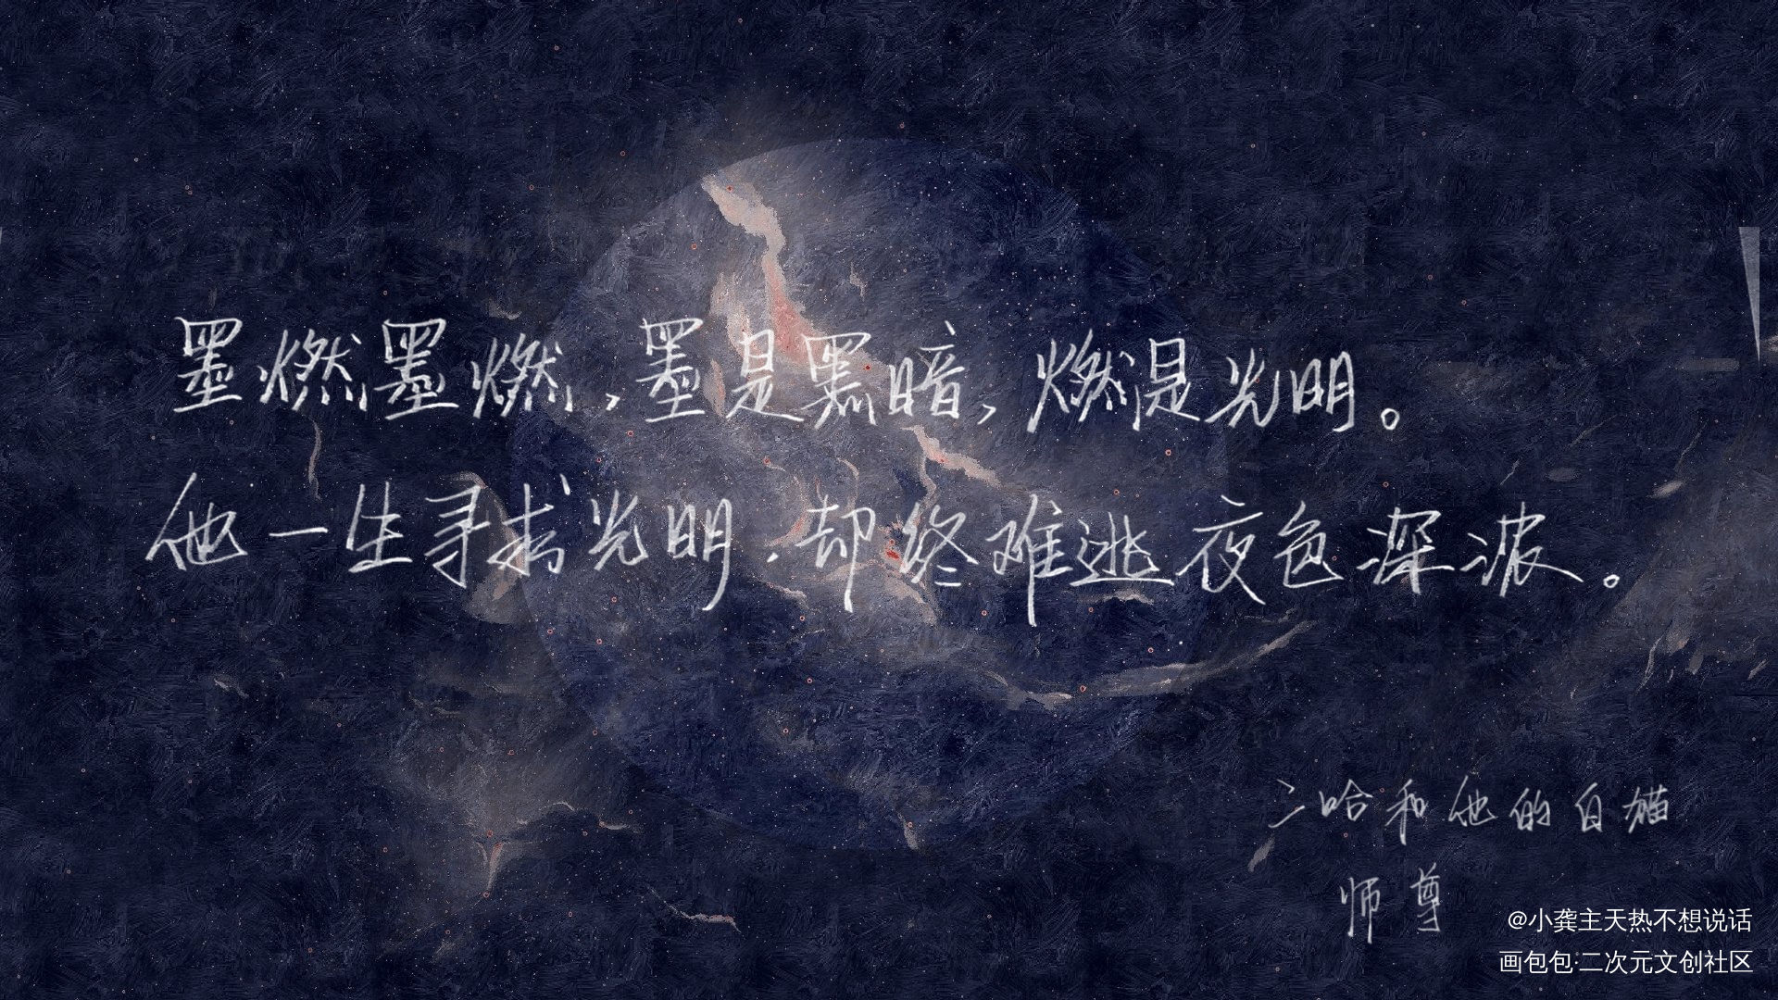 墨燃墨燃，墨是黑暗，燃是光明。
他一生寻求光明，却终难逃夜色深浓。
二哈和他的白猫
师尊
@小龚主天热不想说话
画包包·二次元文创社区